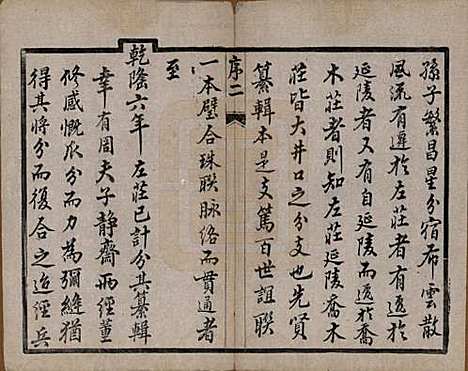 孫子繁昌星分宿布雲散
風流有遷於左莊者有遷於
延陵者又有自延陵而遷於喬
木莊者則知左莊延陵喬木
莊皆大井口之分支也先賢
纂輯本是支篤百世誼聯
序二
一本璧合珠聯脉絡而貫通者
至
乾隆六年左莊已計分其纂輯
幸有周夫子靜齋兩經董
修感慨瓜分力為彌縫猶
得其將分而復合之迨經兵